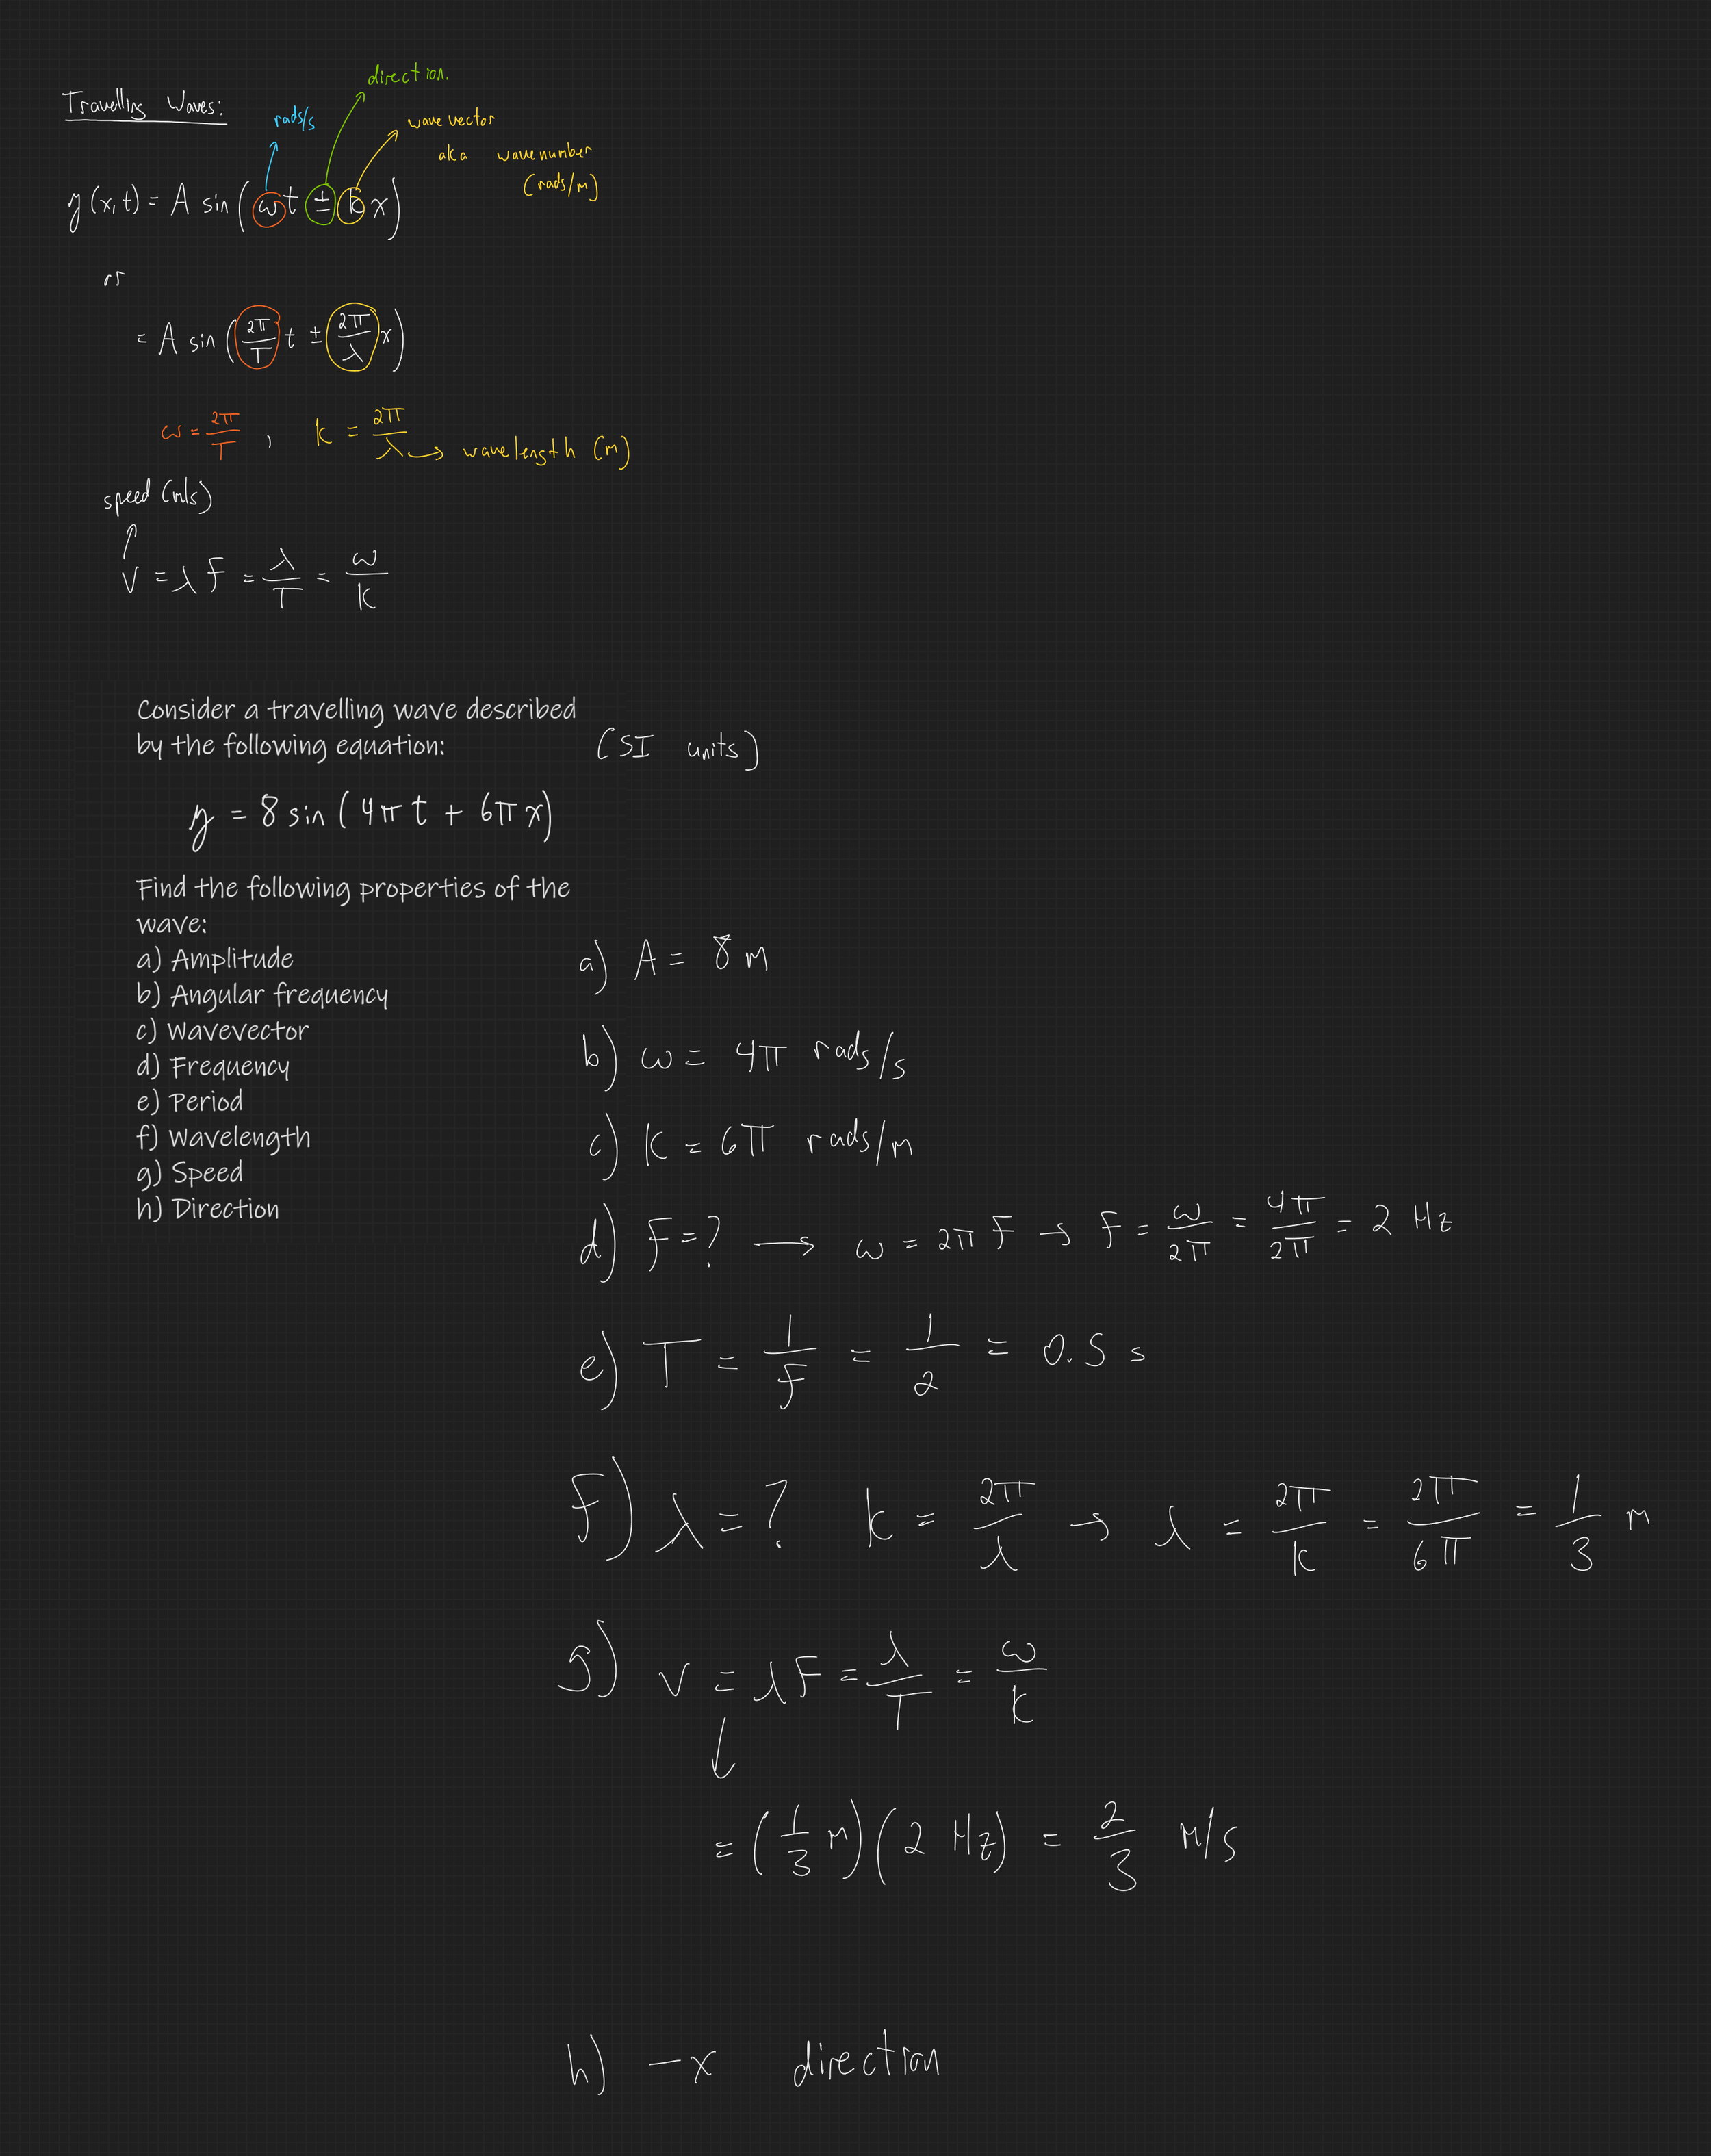 direction.
Travelling Waves:
rads/s
wave vector
aka wavenumber
(rads/m)
y(x,t) = A sin(ωt ± kx)
or
= A sin(2π/T t ± 2π/λ x)
ω = 2π/T , k = 2π/λ → wavelength (m)
speed (m/s)
↑
v = λF = λ/T = ω/k
Consider a travelling wave described
by the following equation:
(SI units)
y = 8 sin(4πt + 6πx)
Find the following properties of the
wave:
a) Amplitude
b) Angular frequency
c) Wavevector
d) Frequency
e) Period
f) Wavelength
g) Speed
h) Direction
a) A = 8 m
b) ω = 4π rads/s
c) k = 6π rads/m
d) F = ? → ω = 2πF → F = ω/2π = 4π/2π = 2 Hz
e) T = 1/F = 1/2 = 0.5 s
f) λ = ? k = 2π/λ → λ = 2π/k = 2π/6π = 1/3 m
g) v = λF = λ/T = ω/k
↓
= (1/3 m)(2 Hz) = 2/3 m/s
h) -x direction